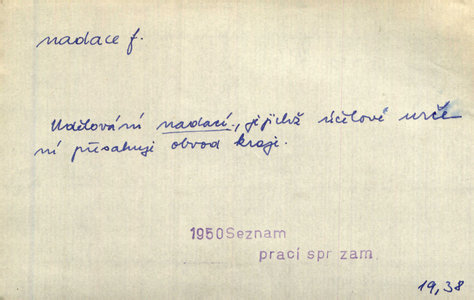 nadace f.
Udělování nadací, jejichž účelové urče-
ní přesahuje obvod kraje.
1950 Seznam
prací spr zam.
19,38